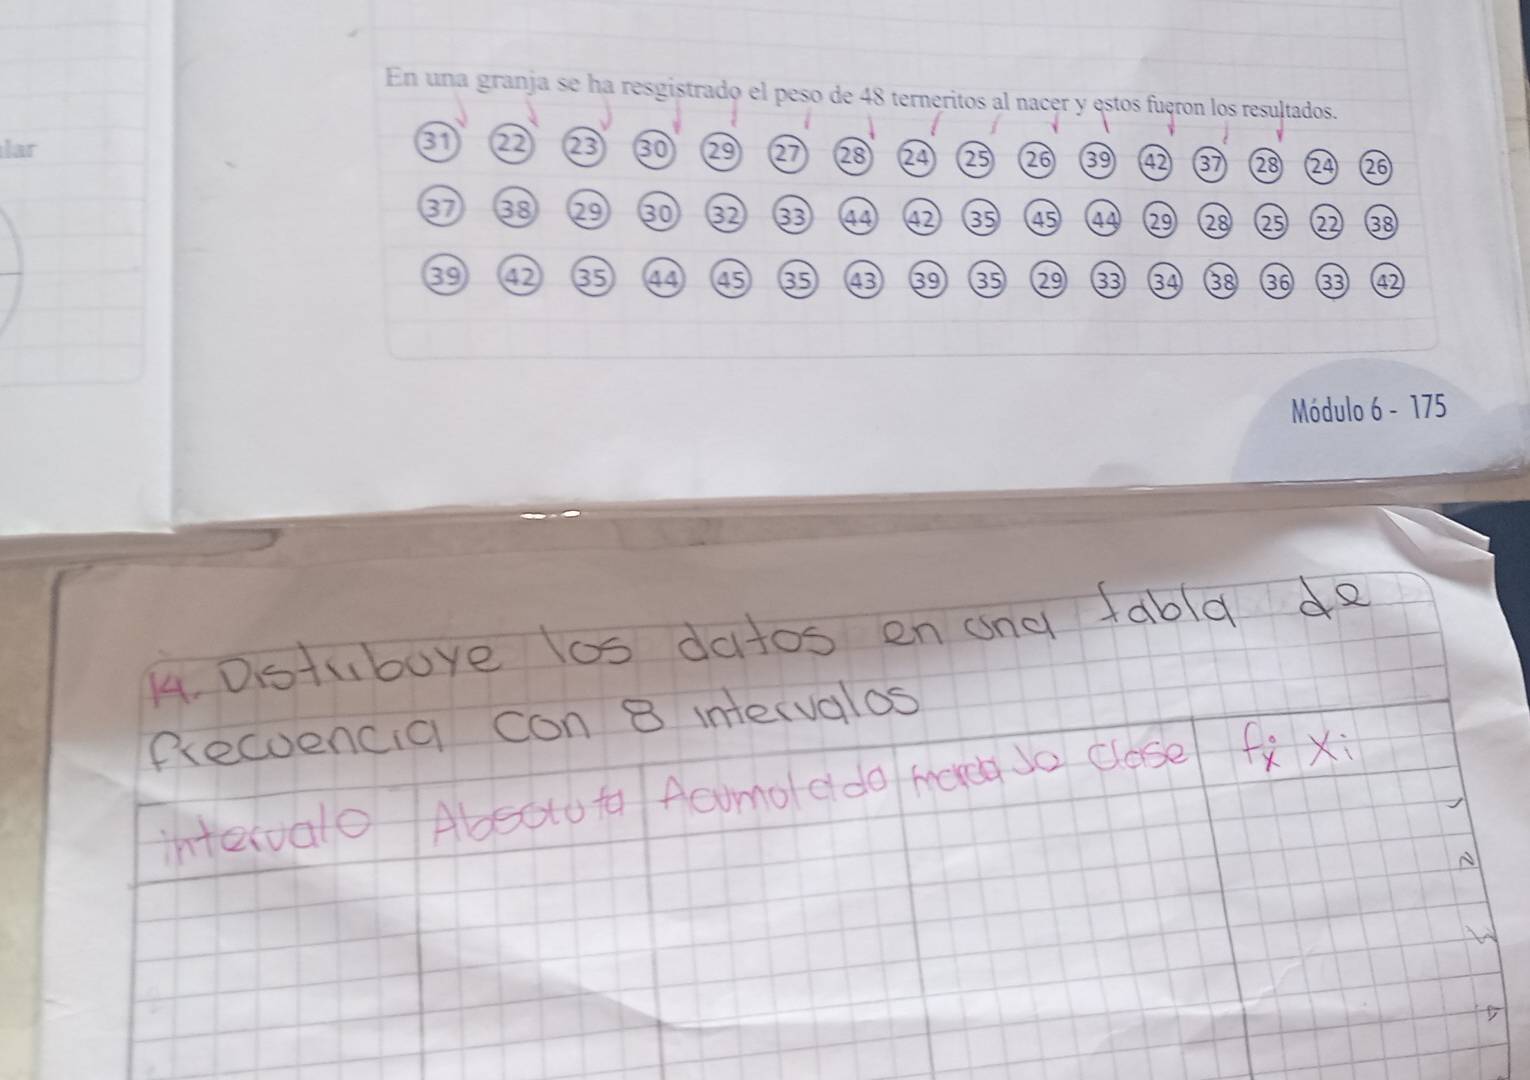 En una granja se ha resgistrado el peso de 48 terneritos al nacer y estos fueron los resultados.
lar
31 22 23 30 29 27 28 24 25 26 39 42 37 28 24 26
37 38 29 30 32 33 44 42 35 45 44 29 28 25 22 38
39 42 35 44 45 35 43 39 35 29 33 34 38 36 33 42
Módulo 6 - 175
14. Distribuye los datos en una tabla de
frecuencia con 8 intervalos
intervalo Absoluta Acumolada marca de clase fi x Xi
1
2
3
4